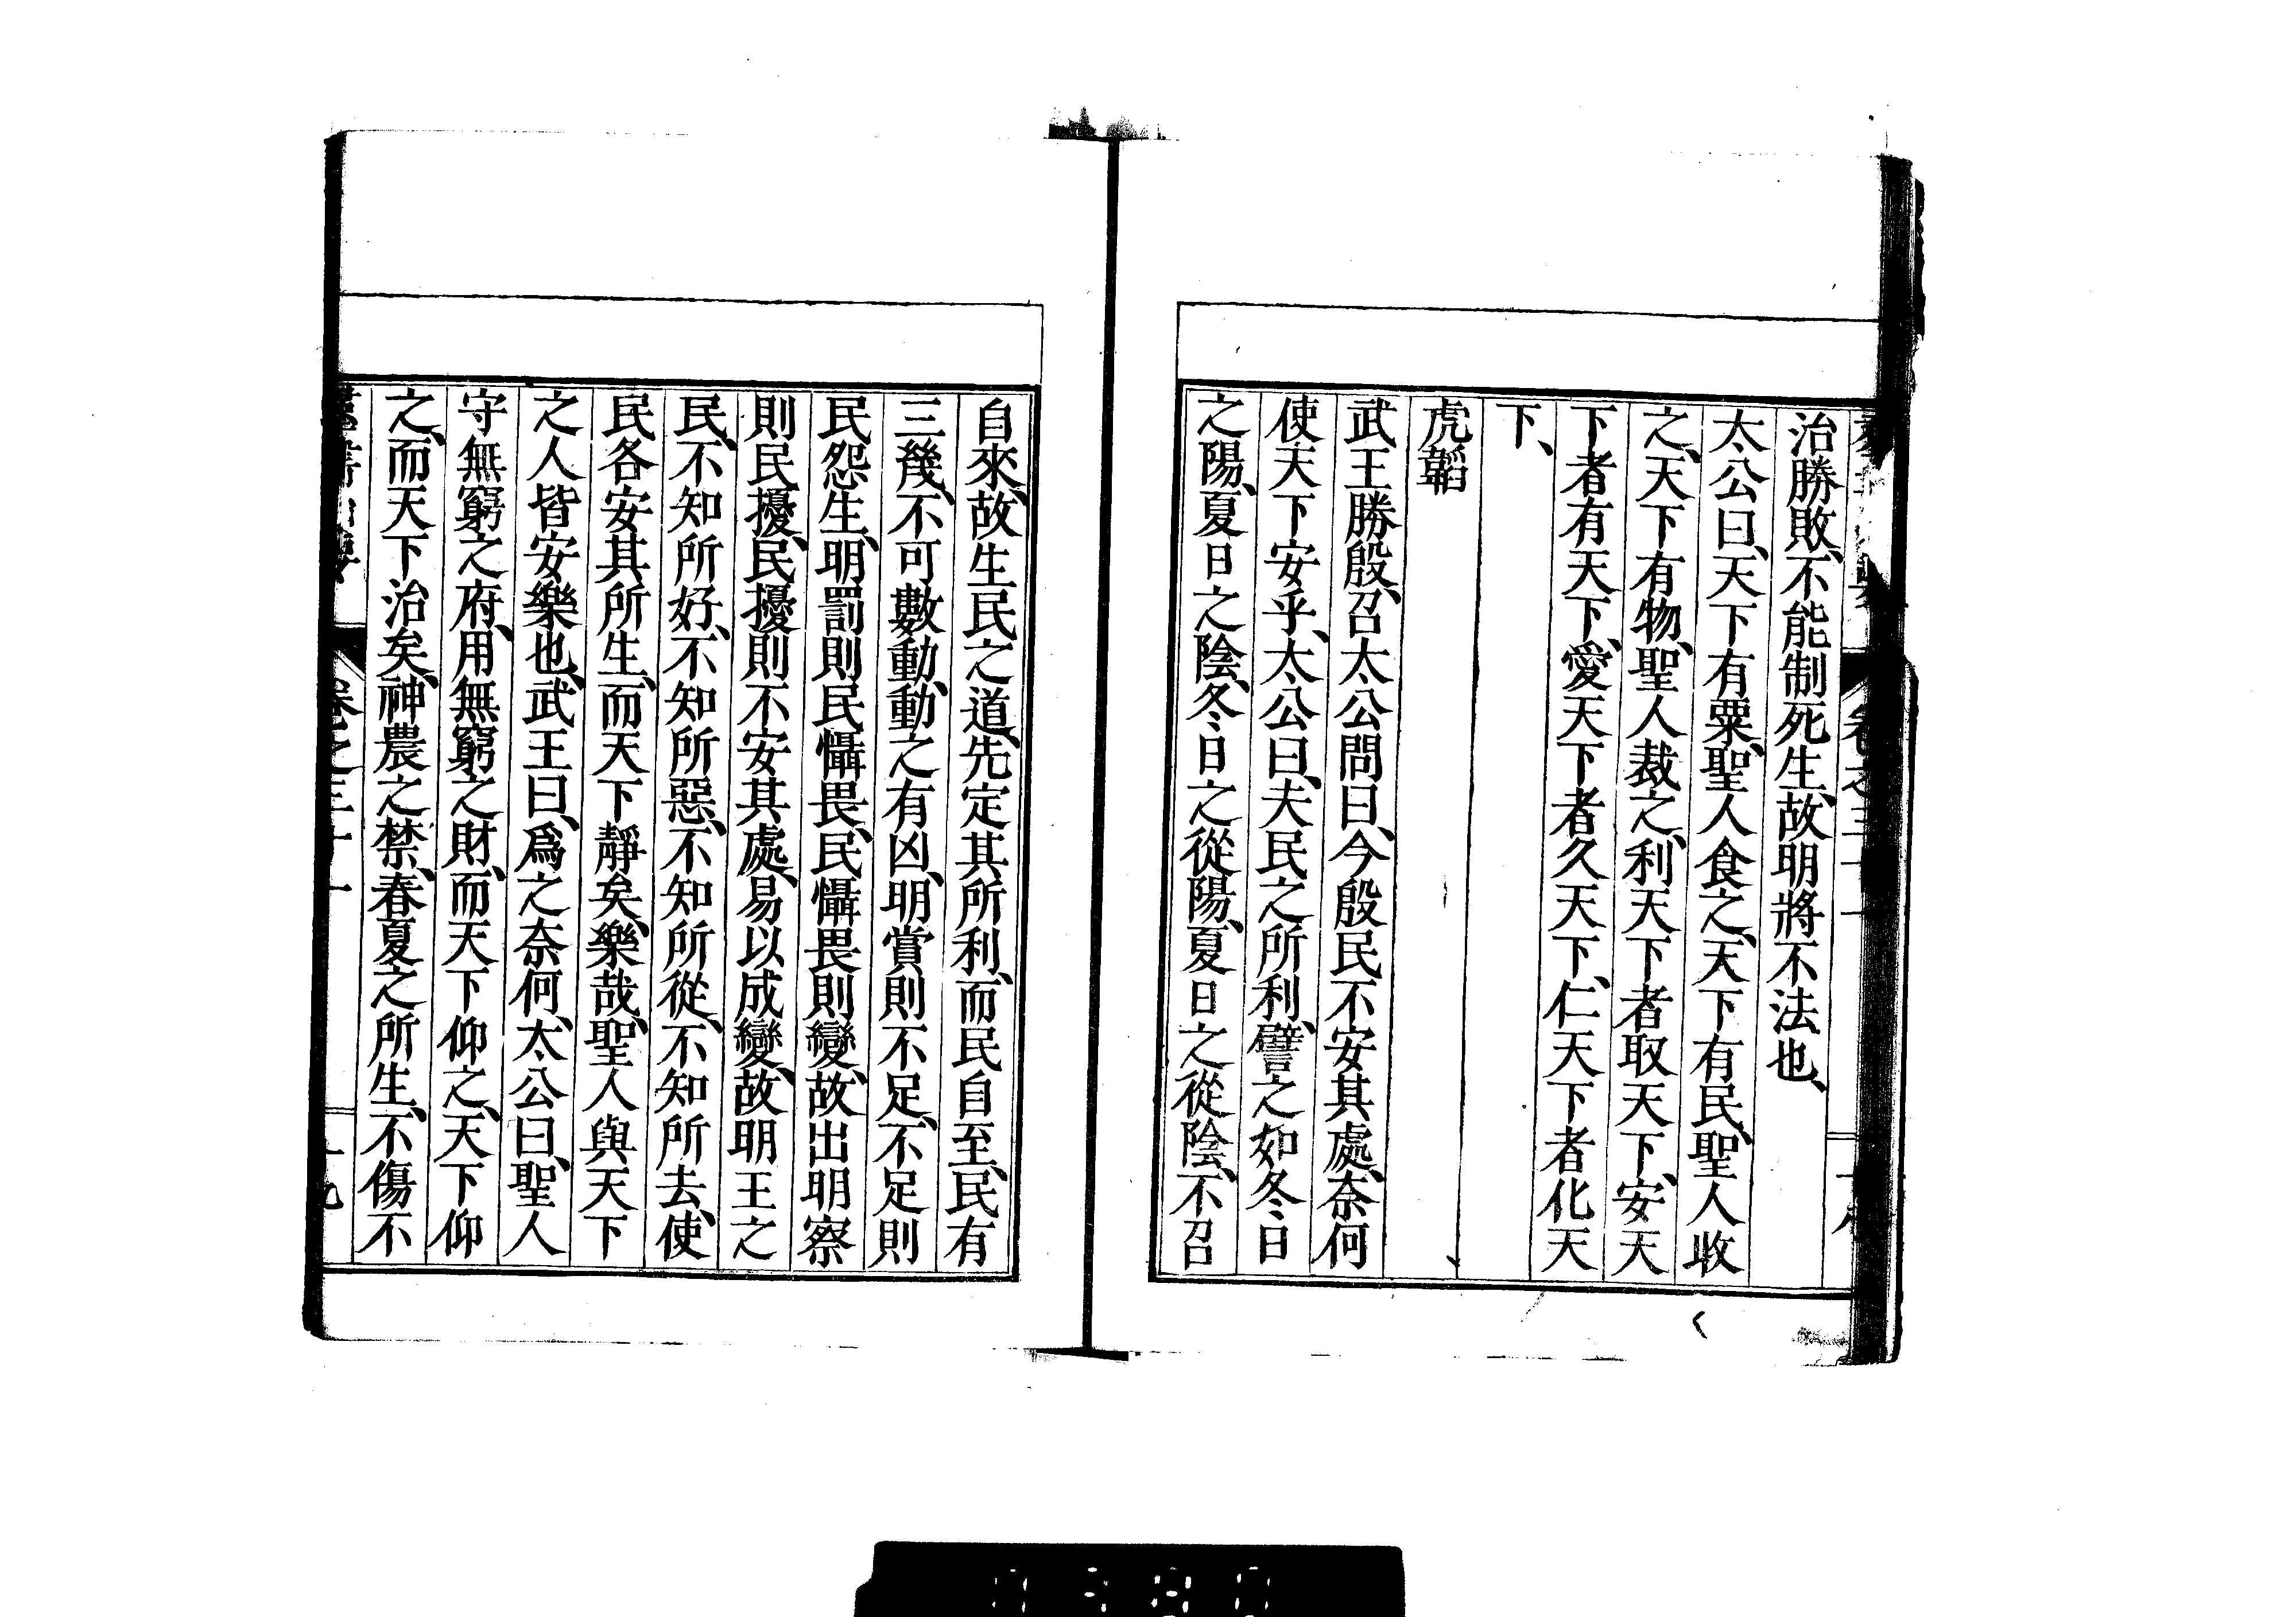 治勝敗、不能制死生、故明將不法也、
太公曰、天下有粟、聖人食之、天下有民、聖人收
之、天下有物、聖人裁之、利天下者取天下、安天
下者有天下、愛天下者久天下、仁天下者化天
下、
虎韜
武王勝殷、召太公問曰、今殷民不安其處、奈何
使天下安乎、太公曰、夫民之所利、譬之如冬日
之陽、夏日之陰、冬日之從陽、夏日之從陰、不召
自來、故生民之道、先定其所利、而民自至、民有
三幾、不可數動、動之有凶、明賞則不足、不足則
民怨生、明罰則民懾畏、民懾畏則變、故出明察
則民擾、民擾則不安其處、易以成變、故明王之
民、不知所好、不知所惡、不知所從、不知所去、使
民各安其所生、而天下靜矣、樂哉、聖人與天下
之人皆安樂也、武王曰、爲之奈何、太公曰、聖人
守無窮之府、用無窮之財、而天下仰之、天下仰
之、而天下治矣、神農之禁、春夏之所生、不傷不
卷之三十一